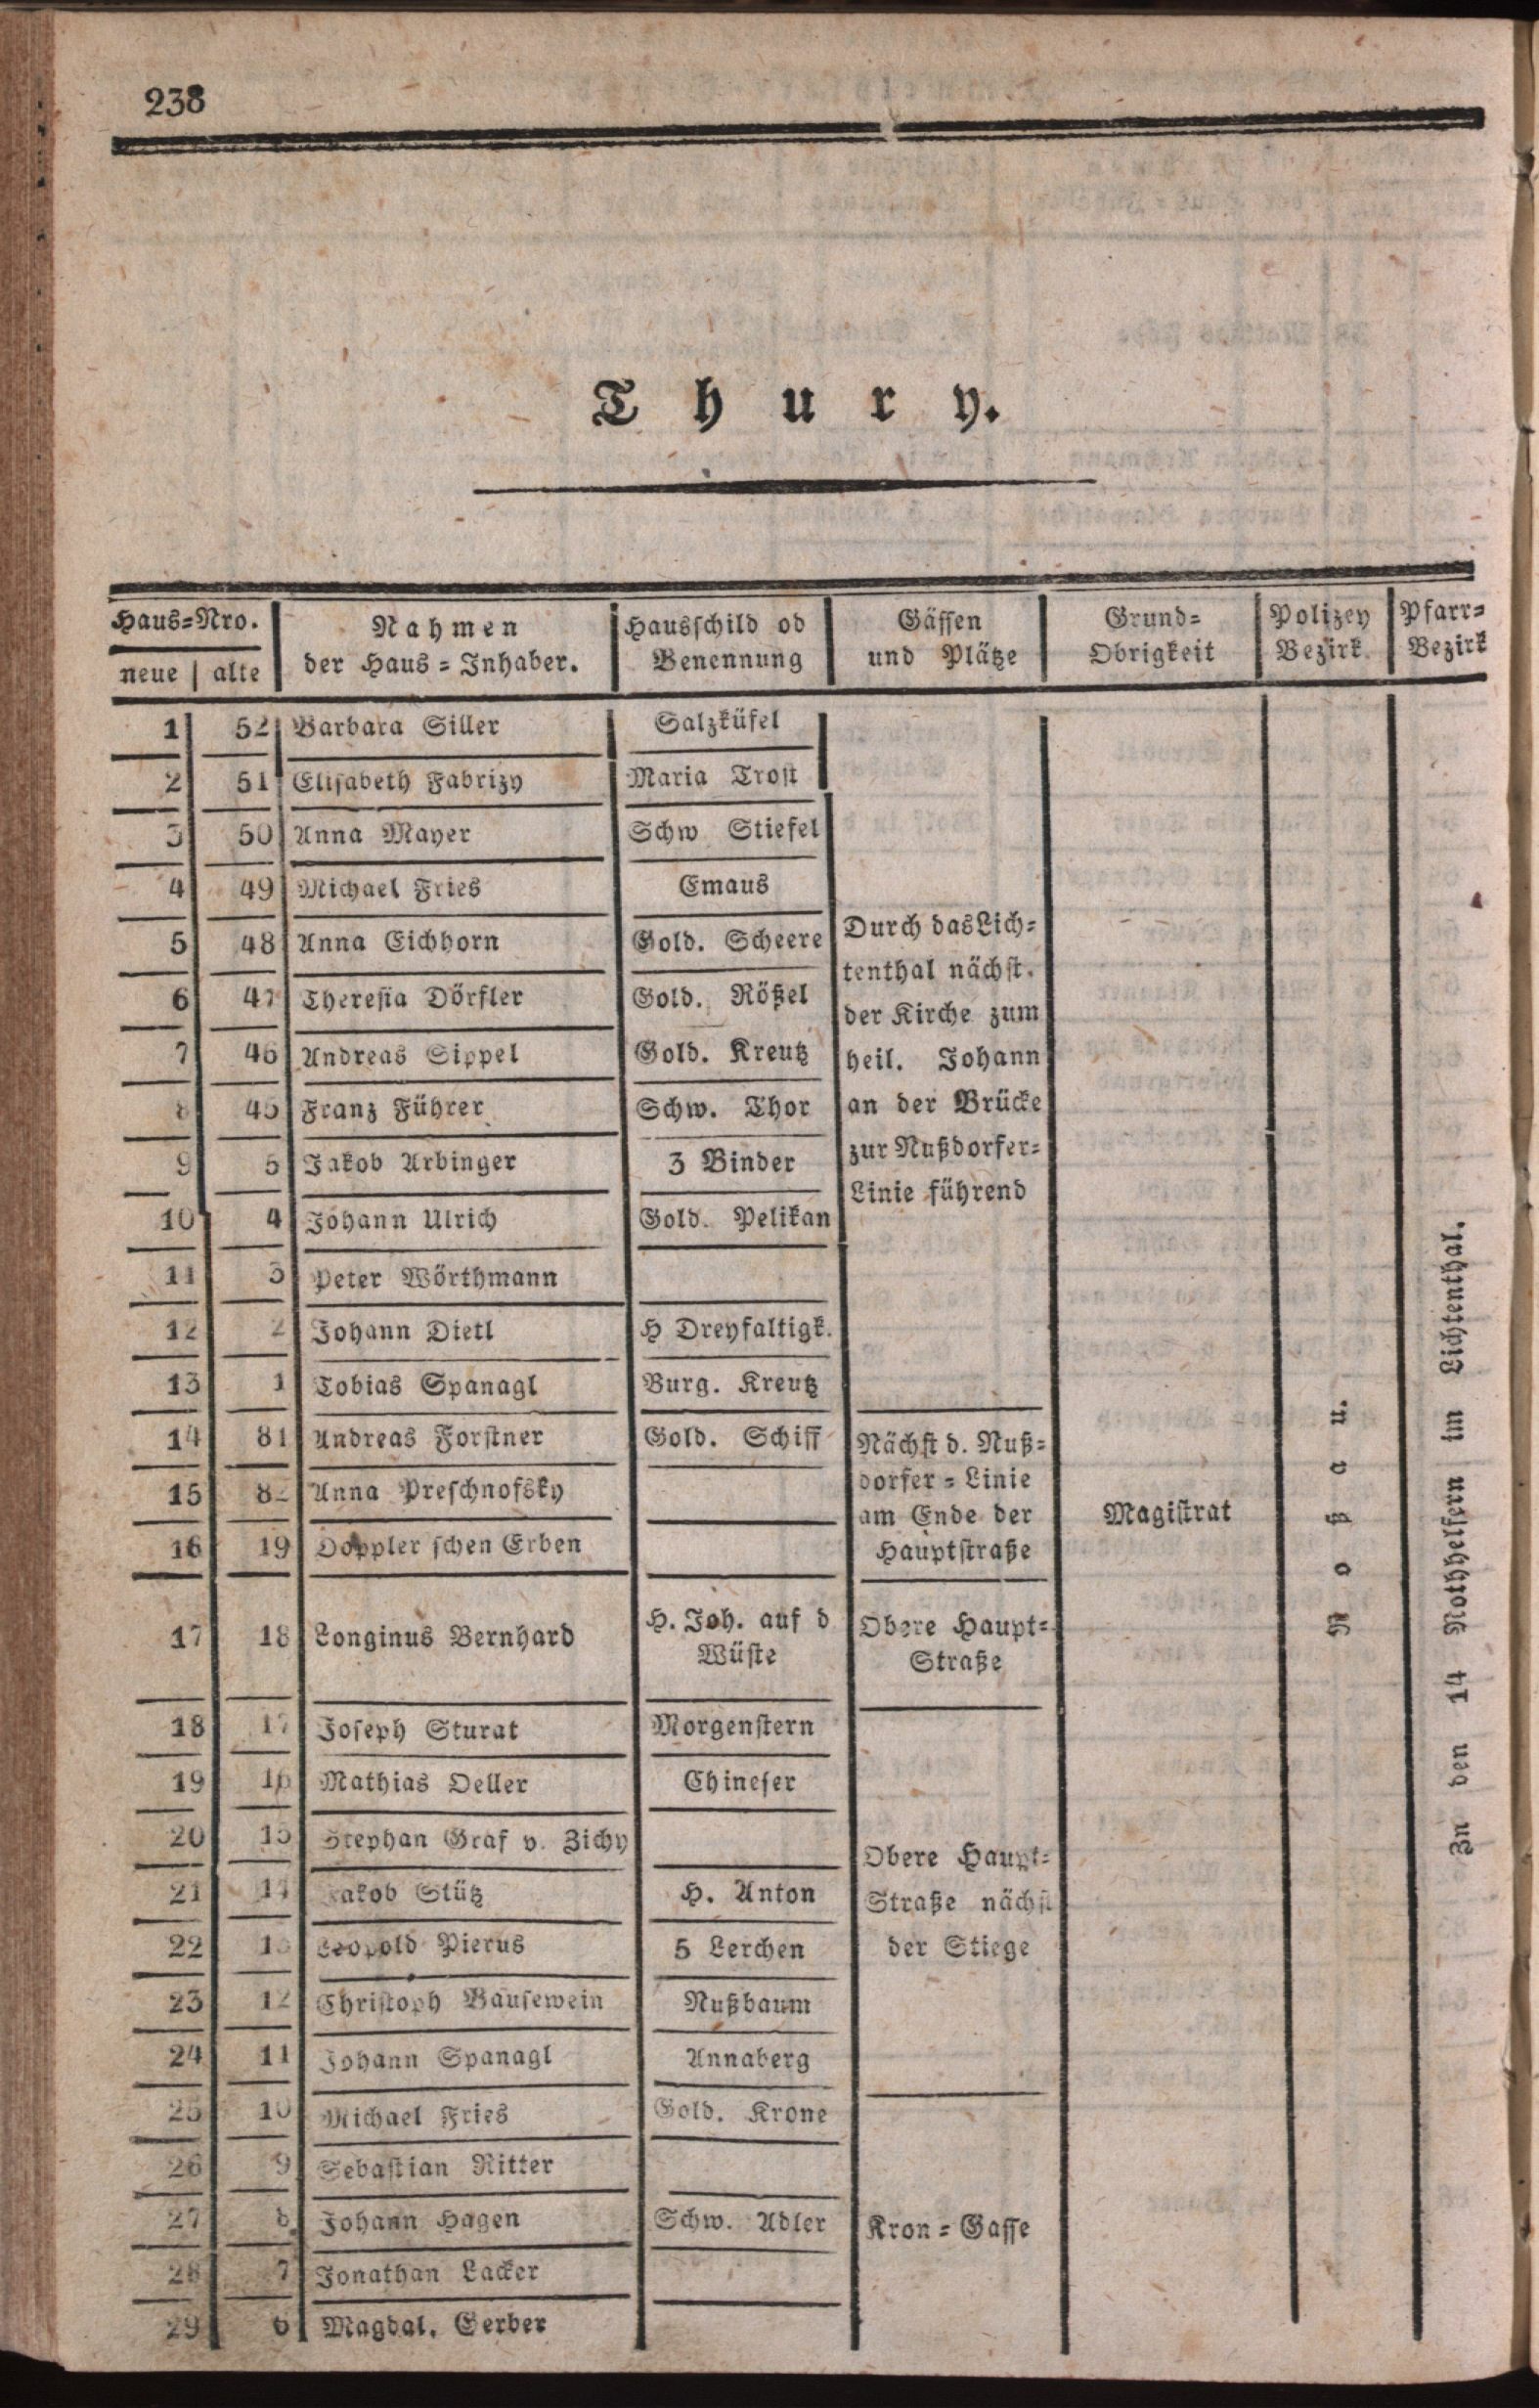 238
Thury.
Haus=Nro. Nahmen Hausschild od Gässen Grund= Polizey Pfarr=
neue alte der Haus=Inhaber. Benennung und Plätze Obrigkeit Bezirk. Bezirk
1 52 Barbara Siller Salzküfel
2 51 Elisabeth Fabrizy Maria Trost
3 50 Anna Mayer Schw Stiefel
4 49 Michael Fries Emaus
5 48 Anna Eichhorn Gold. Scheere
6 47 Theresia Dörfler Gold. Rößel
7 46 Andreas Sippel Gold. Kreutz
8 45 Franz Führer Schw. Thor
9 5 Jakob Arbinger 3 Binder
10 4 Johann Ulrich Gold. Pelikan
11 3 Peter Wörthmann
12 2 Johann Dietl H Dreyfaltigk.
13 1 Tobias Spanagl Burg. Kreutz
Durch das Lich=
tenthal nächst.
der Kirche zum
heil. Johann
an der Brücke
zur Nußdorfer=
Linie führend
14 81 Andreas Forstner Gold. Schiff
15 82 Anna Preschnofsky
16 19 Doppler schen Erben
Nächst d. Nuß=
dorfer=Linie
am Ende der
Hauptstraße
17 18 Longinus Bernhard H. Joh. auf d
Wüste
Obere Haupt=
Straße
18 17 Joseph Sturat Morgenstern
19 16 Mathias Oeller Chineser
20 15 Stephan Graf v. Zichy
21 14 Jakob Stütz H. Anton
22 13 Leopold Pierus 5 Lerchen
23 12 Christoph Bausewein Nußbaum
24 11 Johann Spanagl Annaberg
Obere Haupt=
Straße nächst
der Stiege
25 10 Michael Fries Gold. Krone
26 9 Sebastian Ritter
27 8 Johann Hagen Schw. Adler
28 7 Jonathan Lacker
29 6 Magdal. Gerber
Kron=Gasse
Magistrat
Roßau.
Zu den 14 Nothhelfern im Lichtenthal.